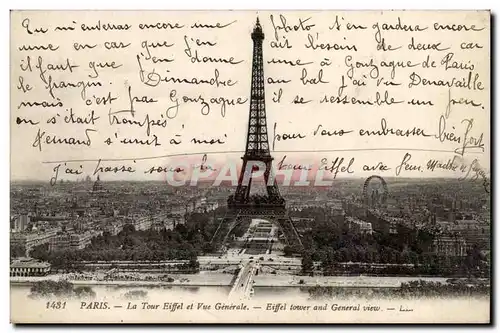 Tu m'enverras encore une photo J'en gardera encore
une en cas que j'en ait besoin de deux car
il faut que j'en donne une à Gonzague de Paris
le frangin. Dimanche au bal j'ai vu Denavaille
mais c'est pas Gonzague il se ressemble un peu.
on s'était trompés
Hernand s'unit à moi pour vous embrasser bien fort
j'ai passé sous la tour Eiffel avec
CPAPHIL
1481 PARIS. — La Tour Eiffel et Vue Générale. — Eiffel tower and General view. — LL.